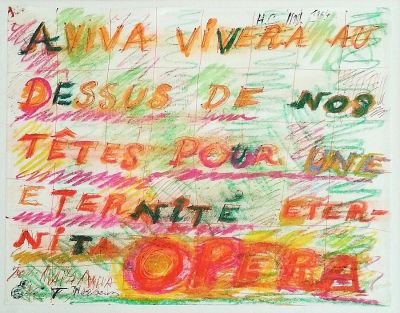 AVIVA VIVERA AU
DESSUS DE NOS
TÊTES POUR UNE
ETERNITÉ ETER-
NITA OPERA